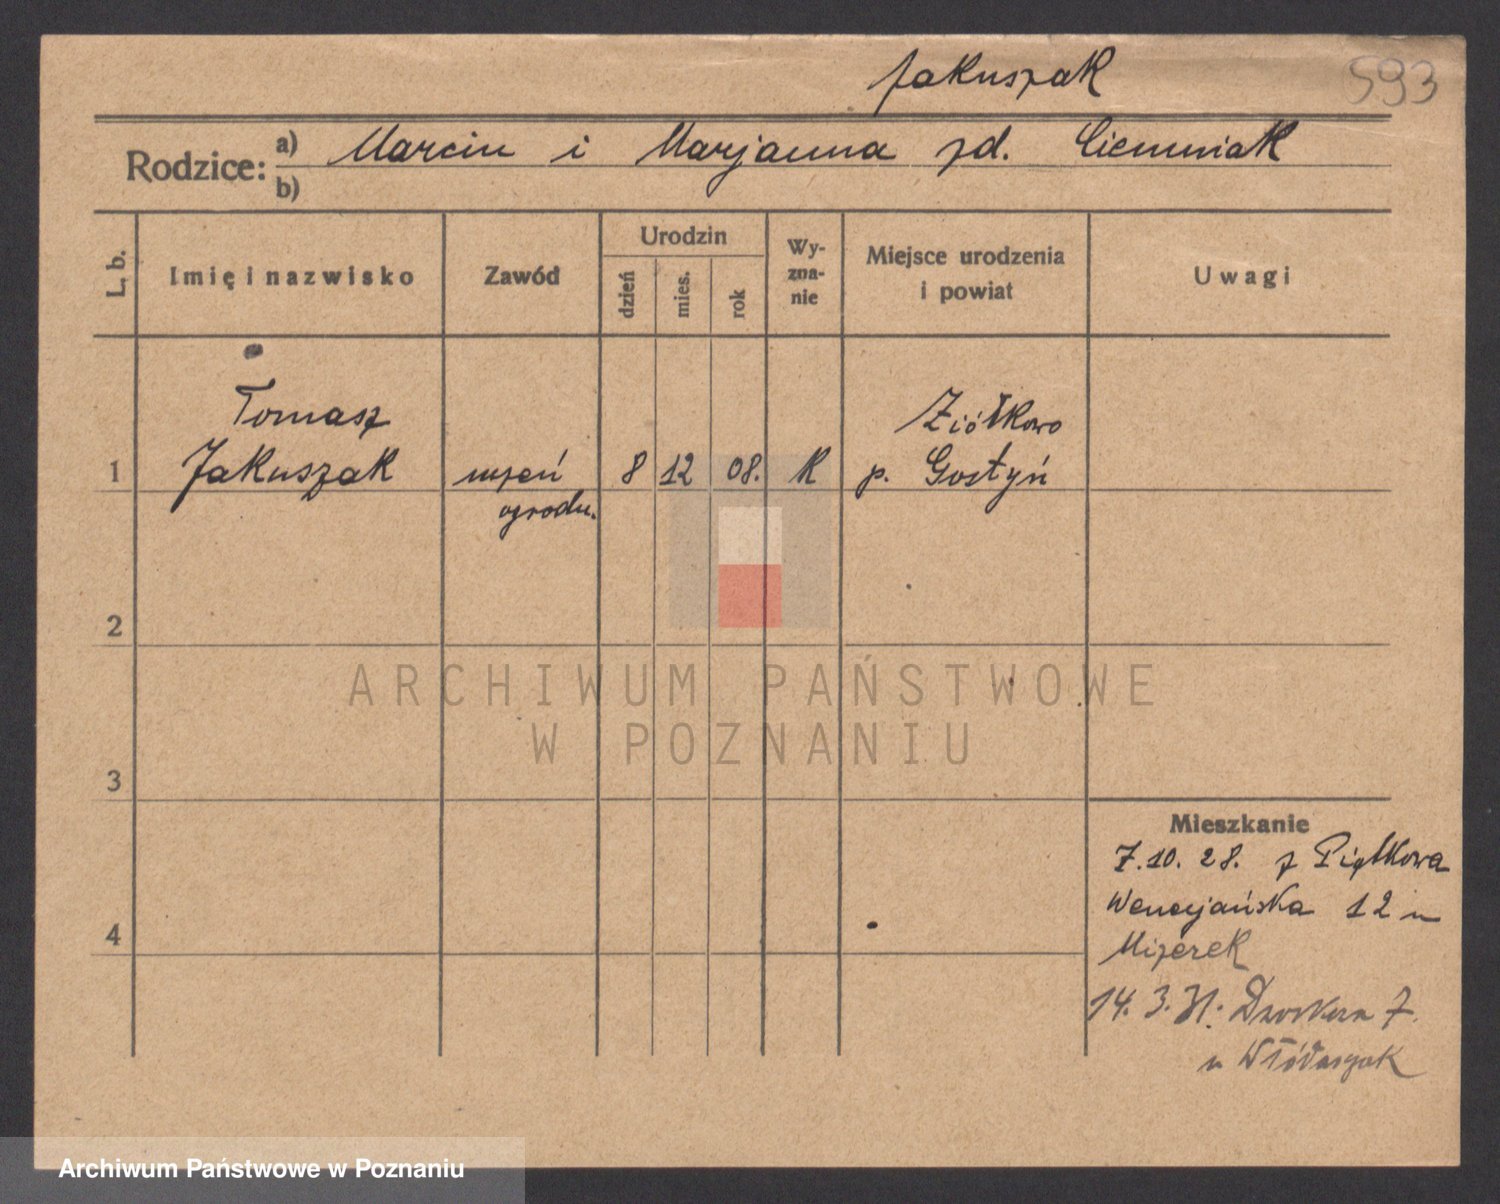 Jakuszak
593
Rodzice: a) Marcin i Marjanna zd. Ciemniak
b)
L. b.
Imię i nazwisko
Zawód
Urodzin
dzień
mies.
rok
Wy-
zna-
nie
Miejsce urodzenia
i powiat
Uwagi
Tomasz
Ziółkowo
1 Jakuszak uczeń 8 12 08. k p. Gostyń
ogrodn.
2
ARCHIWUM PAŃSTWOWE
W POZNANIU
3
Mieszkanie
7.10.28. z Piątkowa
Wenecjańska 12 u
4
Mizerek
14.3.31. 7.
u
Archiwum Państwowe w Poznaniu